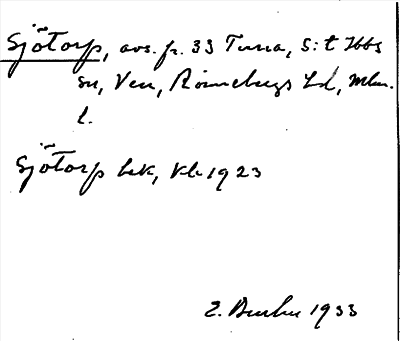 Sjötorp, avs. fr. 33 Tuna, S:t Ibbs
sn, Ven, Rönnebergs hd, Mlm.
l.
Sjötorp bek, Kb 1923
E. 1933